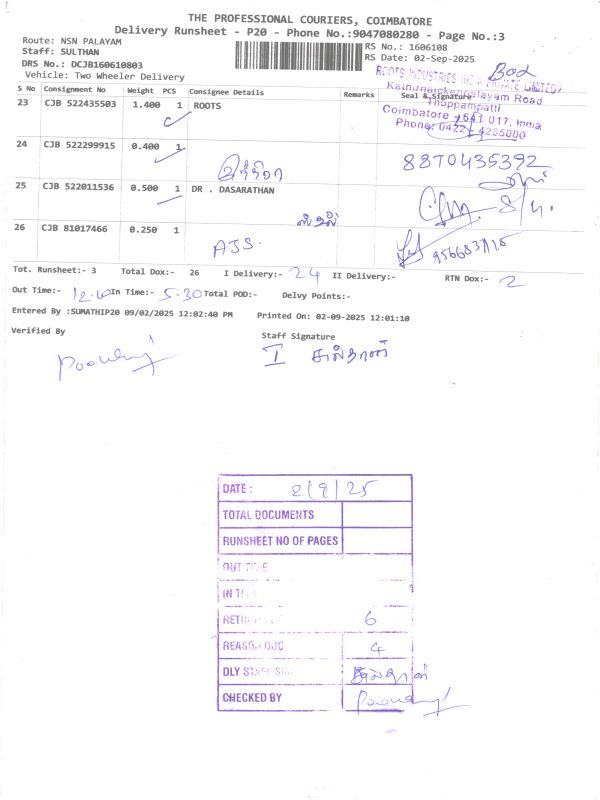 THE PROFESSIONAL COURIERS, COIMBATORE
Delivery Runsheet - P20 - Phone No.:9047080280 - Page No.:3
Route: NSN PALAYAM
RS No.: 1606108
Staff: SULTHAN
RS Date: 02-Sep-2025
DRS No.: DCJB160610803
Vehicle: Two Wheeler Delivery
ROOTS INDUSTRIES INDIA PRIVATE LIMITED
S No Consignment No Weight PCS Consignee Details Remarks Seal & Signature
Kathirnaickenpalayam Road
Thoppampatti
Coimbatore - 641 017, India
Phone: 0422 - 4235000
23 CJB 522435503 1.400 1 ROOTS
24 CJB 522299915 0.400 1
8870435392
25 CJB 522011536 0.500 1 DR . DASARATHAN
26 CJB 81017466 0.250 1
AJS.
Tot. Runsheet:- 3 Total Dox:- 26 I Delivery:- 24 II Delivery:- RTN Dox:- 2
Out Time:- In Time:- 5.30 Total POD:- Delvy Points:-
Entered By :SUMATHIP20 09/02/2025 12:02:40 PM Printed On: 02-09-2025 12:01:10
Verified By
Staff Signature
I சுல்தான்
DATE : 2/9/25
TOTAL DOCUMENTS
RUNSHEET NO OF PAGES
OUT TIME
6
REASON DOC 4
சுல்தான்
CHECKED BY